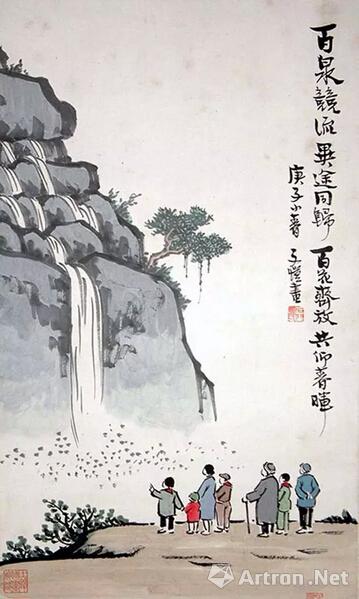 百泉競流異途同歸 百花齊放共仰春暉
庚子小春 子愷畫
Artron.Net